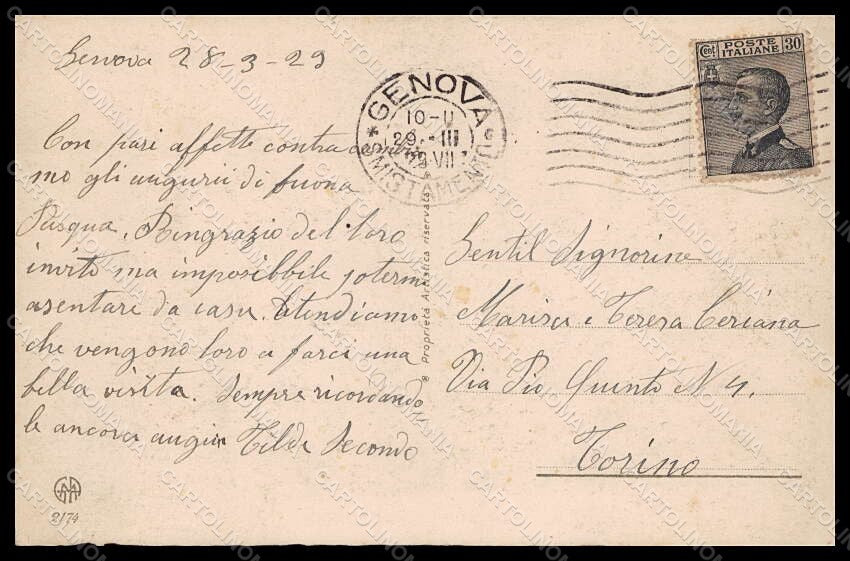 Genova 28-3-29
Con pari affetto contracambia
mo gli augurii di buona
Pasqua. Ringrazio del loro
invito ma imposibbile poterm
asentare da casa. Atendiamo
che vengono loro a farci una
bella visita. Sempre ricordando
le ancora auguri Tilde Secondo
GENOVA
10-11
29.-III
29 VII
SMISTAMENTO
Cent POSTE ITALIANE 30
Proprietà Artistica riservata
Gentil Signorine
Marisa e Teresa Ceriana
Via Pio Quinto N 4.
Torino
2174
CARTOLINOMANIA